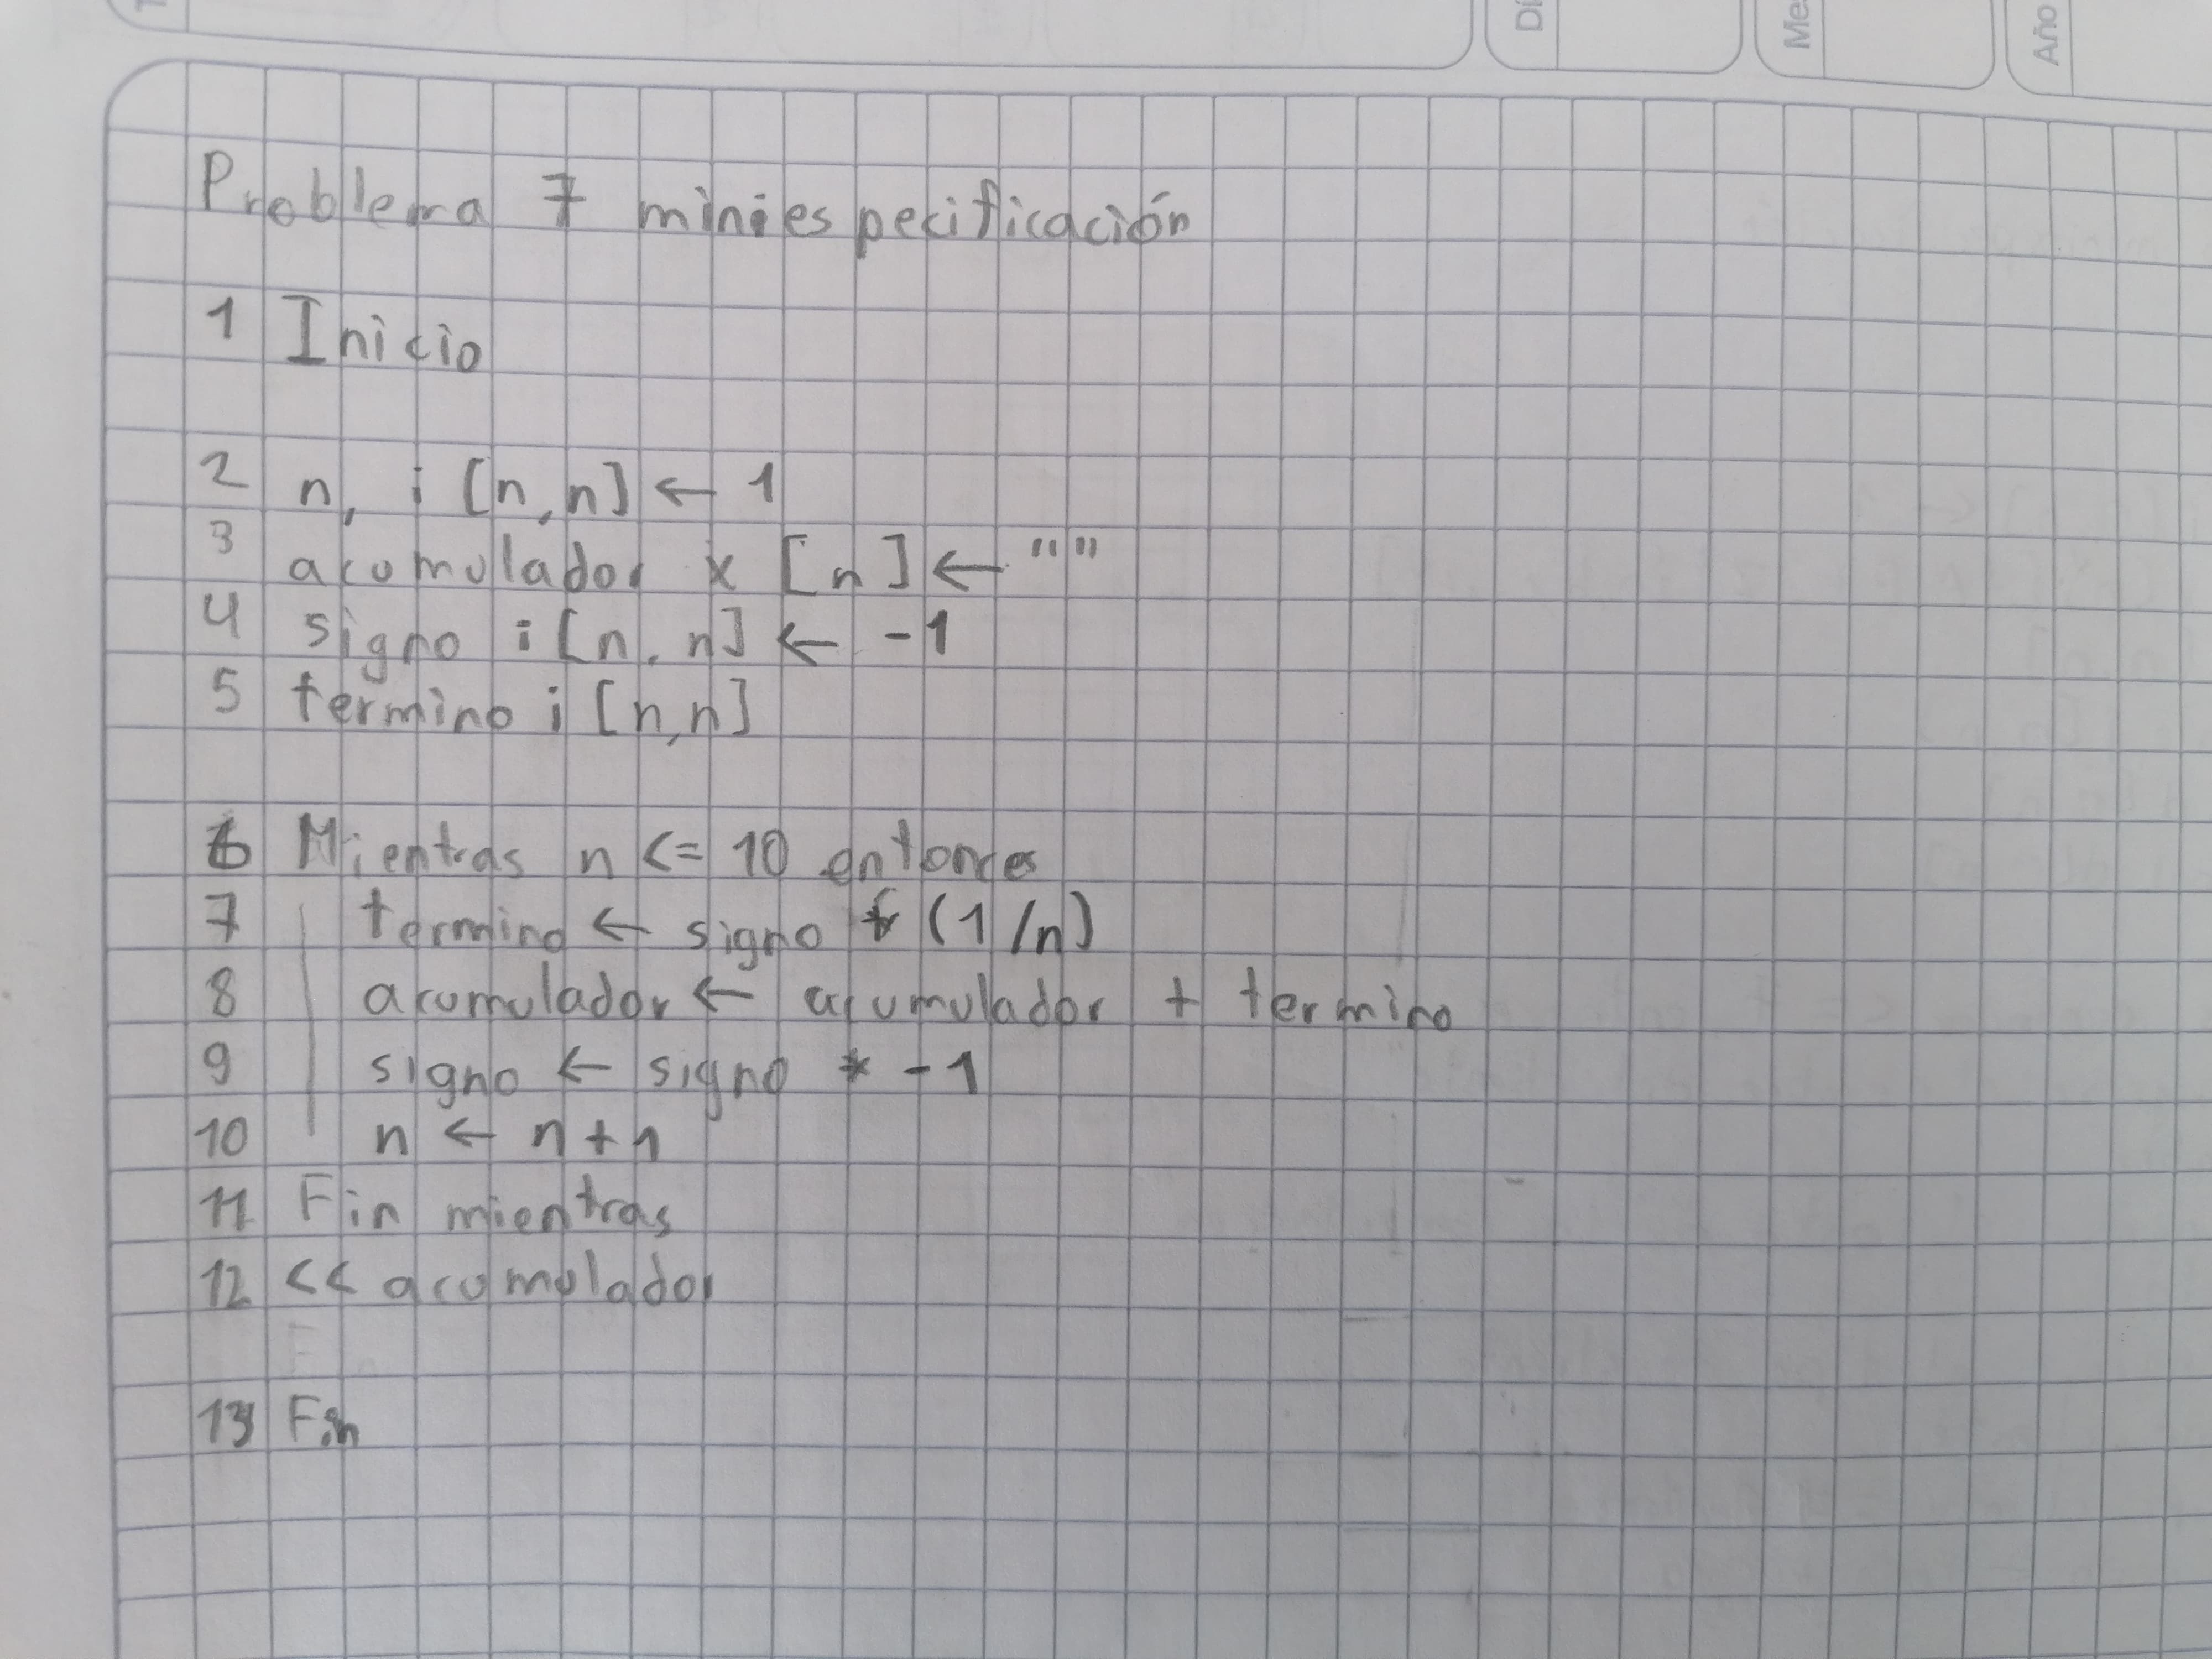 Año
Problema 7 miniespecificación
1 Inicio
2 n, i [n,n] ← 1
3 acumulador x [n] ← ""
4 signo i [n,n] ← -1
5 termino i [n,n]
6 Mientras n <= 10 entonces
7 termino ← signo * (1/n)
8 acumulador ← acumulador + termino
9 signo ← signo * -1
10 n ← n+1
11 Fin mientras
12 << acumulador
13 Fin